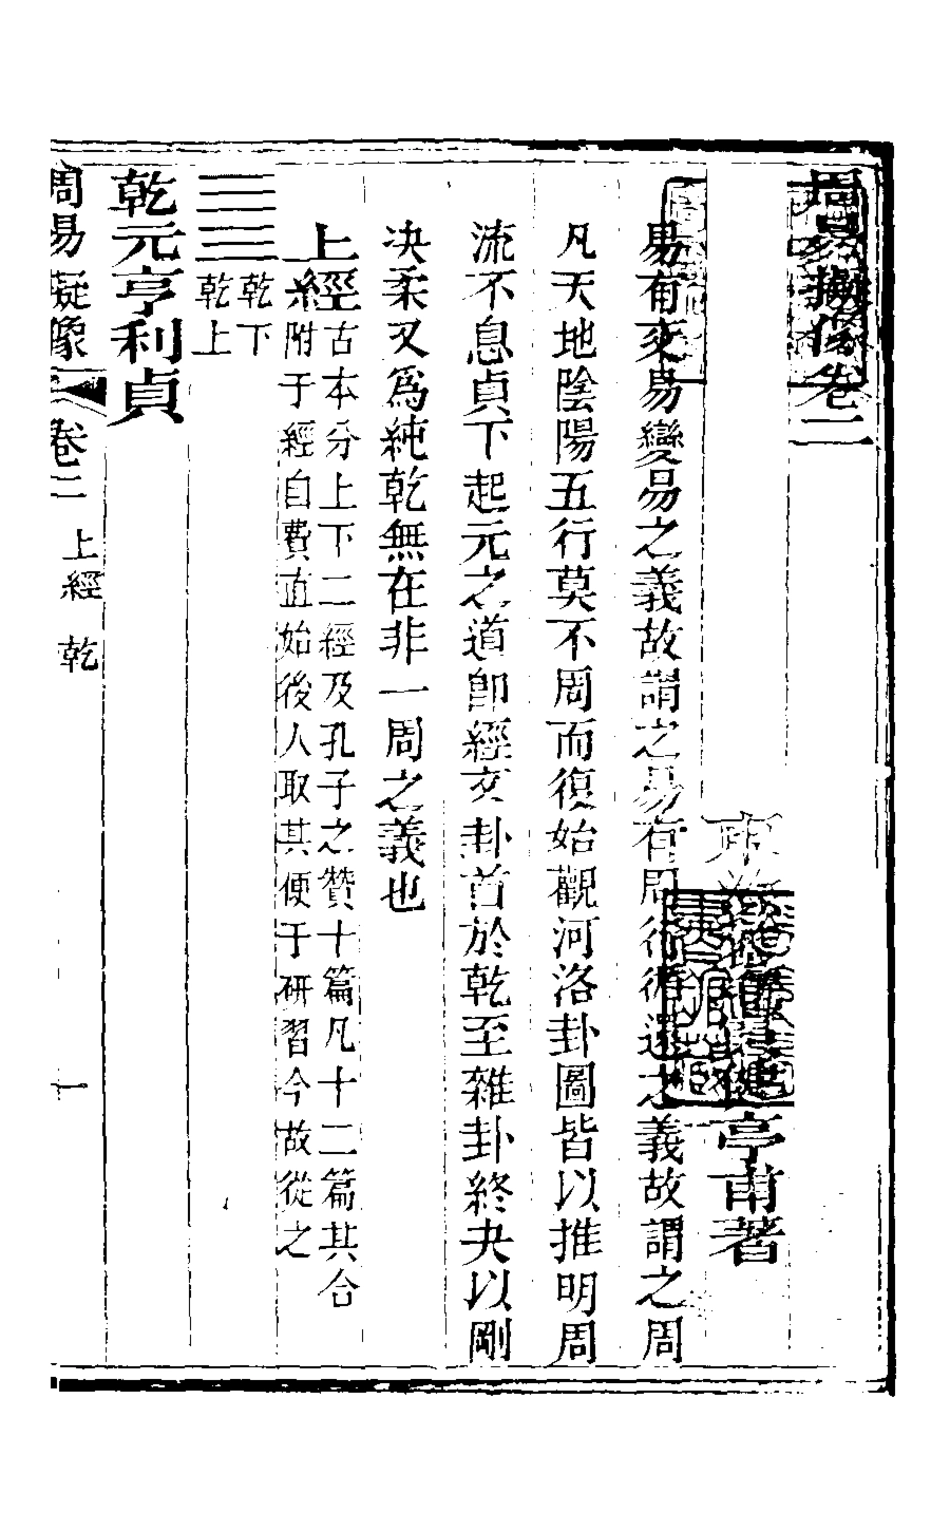 周易擬像卷二
東海 亭甫著
易有交易變易之義故謂之易有周衍循還之義故謂之周
凡天地陰陽五行莫不周而復始觀河洛卦圖皆以推明周
流不息貞下起元之道卽經文卦首於乾至雜卦終夬以剛
决柔又爲純乾無在非一周之義也
上經
古本分上下二經及孔子之贊十篇凡十二篇其合
附于經自費直始後人取其便于研習今故從之
乾下
乾上
乾元亨利貞
周易擬像 卷二 上經 乾 一